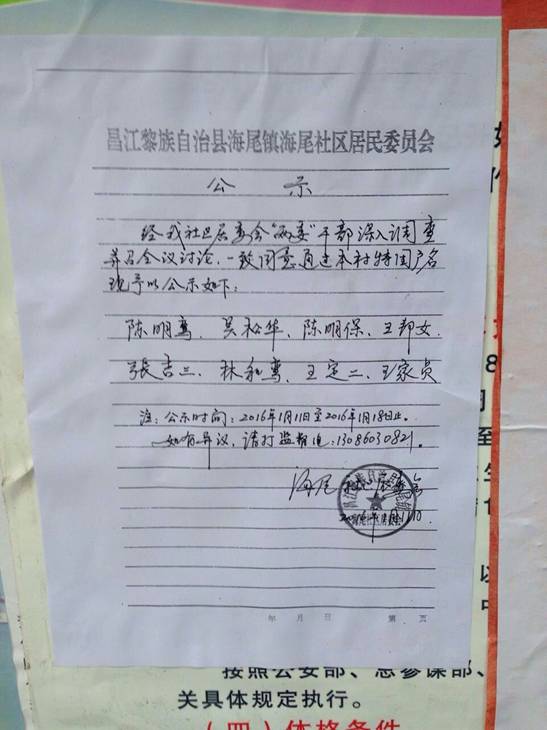 昌江黎族自治县海尾镇海尾社区居民委员会
公示
经我社区居委会“两委”干部深入调查
并召会议讨论,一致同意通过本村特困户名
现予以公示如下:
陈明鸾、吴松华、陈明保、王邦女、
张吉三、林和鸾、王定二、王家员
注:公示时间:2016年1月11日至2016年1月18日止。
如有异议,请打监督电:13086030821。
海尾
年 月 日 第 页
按照公安部、总参谋部、
关具体规定执行。
(四)体格条件